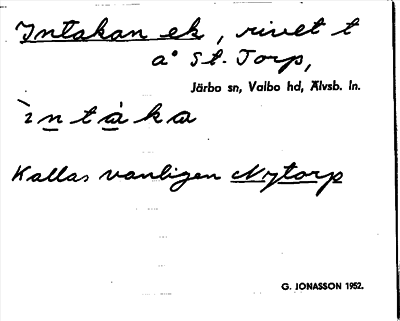 Intakan ek, rivet t
a° St. Torp,
Järbo sn, Valbo hd, Älvsb. ln.
ìntáka
Kallas vanligen Nytorp
G. JONASSON 1952.